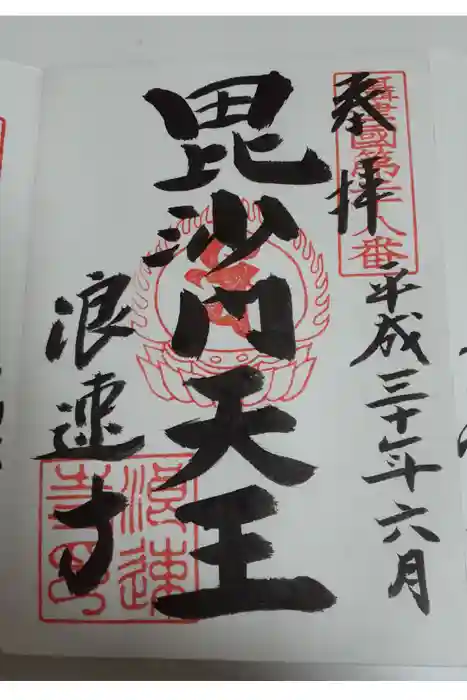 奉拝
攝津國第六八番
平成三十年六月
毘沙門天王
浪速寺
浪速寺印